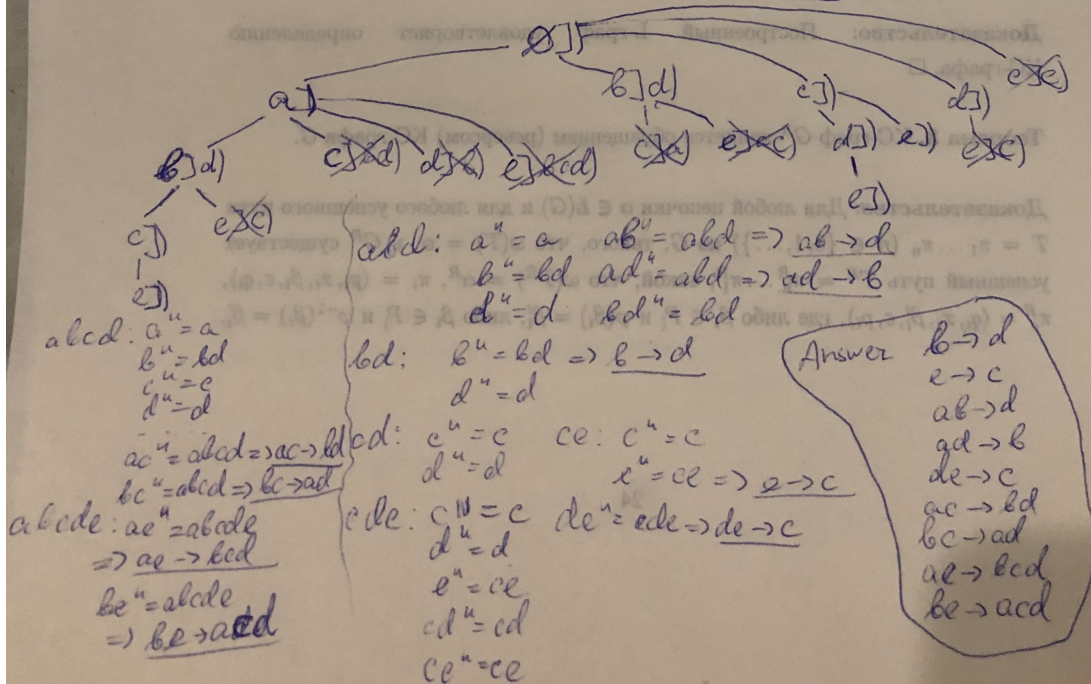 ∅])
a]) b]d) c]) d]) e]c)
b]d) c]bd) d]b) e]bcd) c]a) e]ac) d]) e]) e]c)
c]) e]c) e])
e])
abcd: a" = a
b" = bd
c" = c
d" = d
ac" = abcd => ac → bd
bc" = abcd => bc → ad
abcde: ae" = abcde
=> ae → bcd
be" = abcde
=> be → acd
abd: a" = a ab" = abd => ab → d
b" = bd ad" = abd => ad → b
d" = d bd" = bd
bd: b" = bd => b → d
d" = d
cd: c" = c ce: c" = c
d" = d e" = ce => e → c
cde: c" = c de" = cde => de → c
d" = d
e" = ce
cd" = cd
ce" = ce
Answer b → d
e → c
ab → d
ad → b
de → c
ac → bd
bc → ad
ae → bcd
be → acd